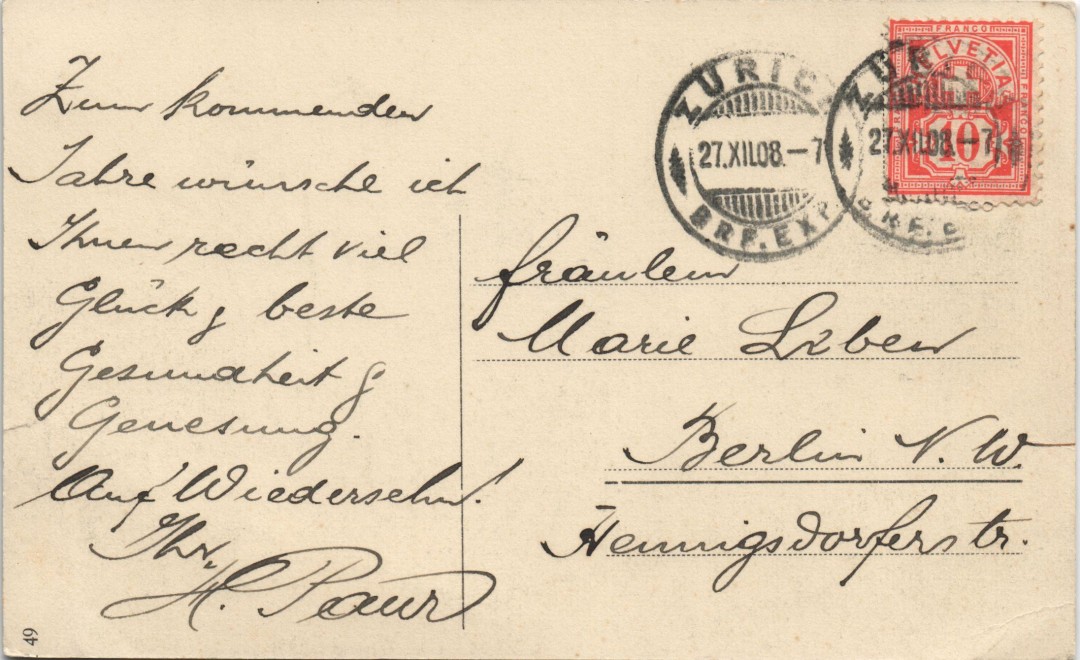 Zum kommenden
Jahre wünsche ich
Ihnen recht viel
Glück & beste
Gesundheit &
Genesung.
Auf Wiedersehn!
Ihr
H. Paur
49
ZÜRICH
27.XII.08.–7
BRF. EXP.
ZÜR
27.XII.08.–7
BRF. E
FRANCO
HELVETIA
10
Fräulein
Marie
Berlin N.W.
Hennigsdorferstr.